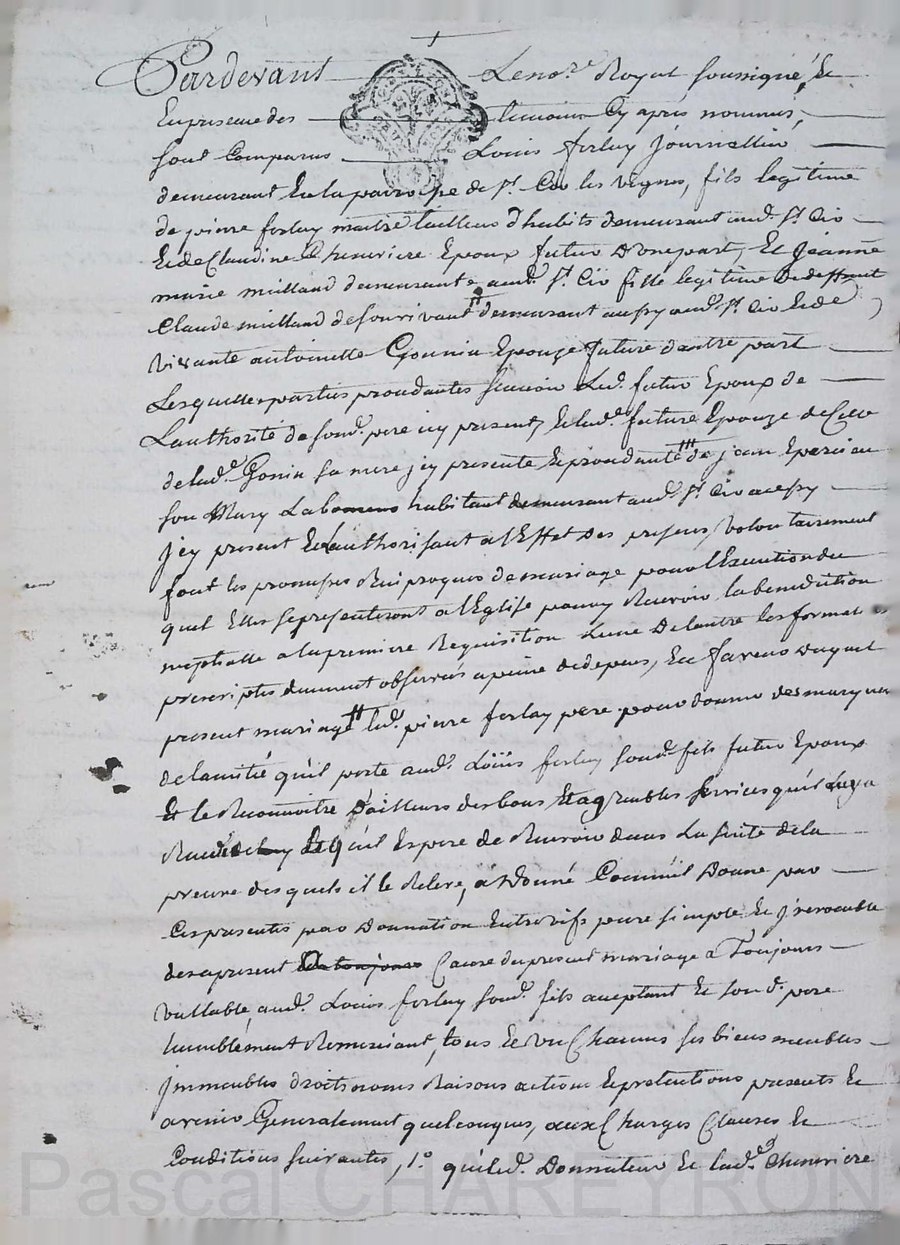 Pardevant Le no.re Royal soussigné, Et
En presence des temoins Cy après nommés,
sont Comparus Louis forlay Journallier
demeurant En la parroisse de St. Cir les vignes, fils legitime
de pierre forlay maitre tailleur d'habits demeurant aud. St. Cir
Et de Claudine Chenevriere Epoux futur D'une part, Et Jeanne
marie milland demeurante aud. St. Cir fille legitime De deffunt
Claude milland de son vivant demeurant aussy aud. St. Cir Et de
vivante antoinette Gounin Epouze future d'autre part
Lesquelles parties procedantes scavoir Led. futur Epoux de
L'authorité de sond. pere icy present, Et lad. future Epouze de Celle
de lad. Gonin sa mere jcy presente Et procedante de jean
son Mary Lab habitant demeurant aud. St. Cir aussy
jcy present Et L'authorisant a l'Effet Des presentes, volontairement
font les promesses Reciproques de mariage pour l'Execution du
quel Elles se presenteront a l'Eglise pour y Recevoir la benediction
nuptialle a la premiere Requisition L'une De l'autre les formalités
prescriptes duement observées a peine de depens, En faveur Duquel
present mariage led. pierre forlay pere pour donner des marques
de l'amitié qu'il porte aud. Loüis forlay sond. fils futur Epoux
Et le Reconnoitre D'ailleurs des bons Et agreables services qu'il Luy a
Et qu'il Espere de Recevoir dans La suite de la
preuve des quels il le Releve, a Donné Comm'il Donne par
Ces presentes par Donnation Entrevifs pure simple Et jrrevocable
des apresent Et a toujours Cause du present mariage a Toujours
vallable, aud. Louis forlay sond. fils acceptant Et sond. pere
humblement Remerciant, tous Et un Chacuns ses biens meubles
jmmeubles droits noms Raisons actions Et pretentions presents Et
avenir Generalement quelconques, aux Charges Clauses Et
Conditions suivantes, 1.° que led. Donnateur Et lad. Chenevriere
Pascal CHAREYRON